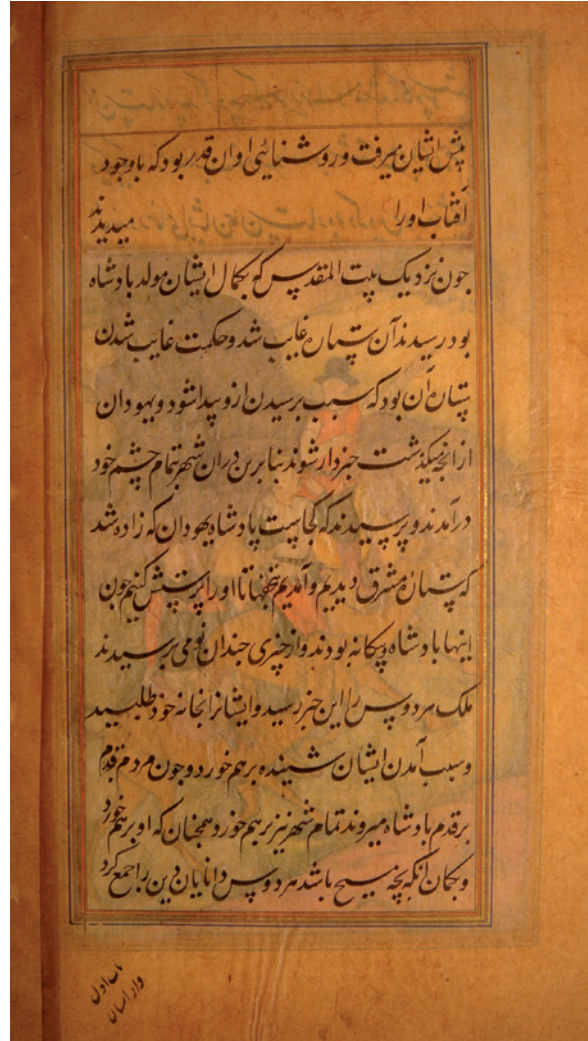 پیش ایشان میرفت و روشنائی او آن قدر بود که باوجود
آفتاب اورا میدیدند
جون نزدیک بیت المقدس که بکمال ایشان مولد بادشاه
بود رسیدند آن ستاره غایب شد و حکمت غایب شدن
ستاره آن بود که سبب برسیدن ازو پیدا شود و یهودان
از آنجه میگذشت خبردار شوند بنابرین دران شهر بتمام چشم خود
درآمدند و پرسیدند که کجاست پادشاه یهودان که زاده شد
که ستاره مشرق دیدیم و آمدیم تا اورا پرستش کنیم جون
اینها بادشاه بیکانه بودند و از چیزی جندان نومی برسیدند
ملک هردوس را این خبر رسید و ایشانرا بخانه خود طلبید
و سبب آمدن ایشان شنیده برهم خورد و جون مردم قدم
برقدم بادشاه میروند تمام شهر نیز برهم خورد همجنان که او برهم خورد
و بکمان آنکه بچه مسیح باشد هردوس دانایان دین را جمع کرد
باب اول